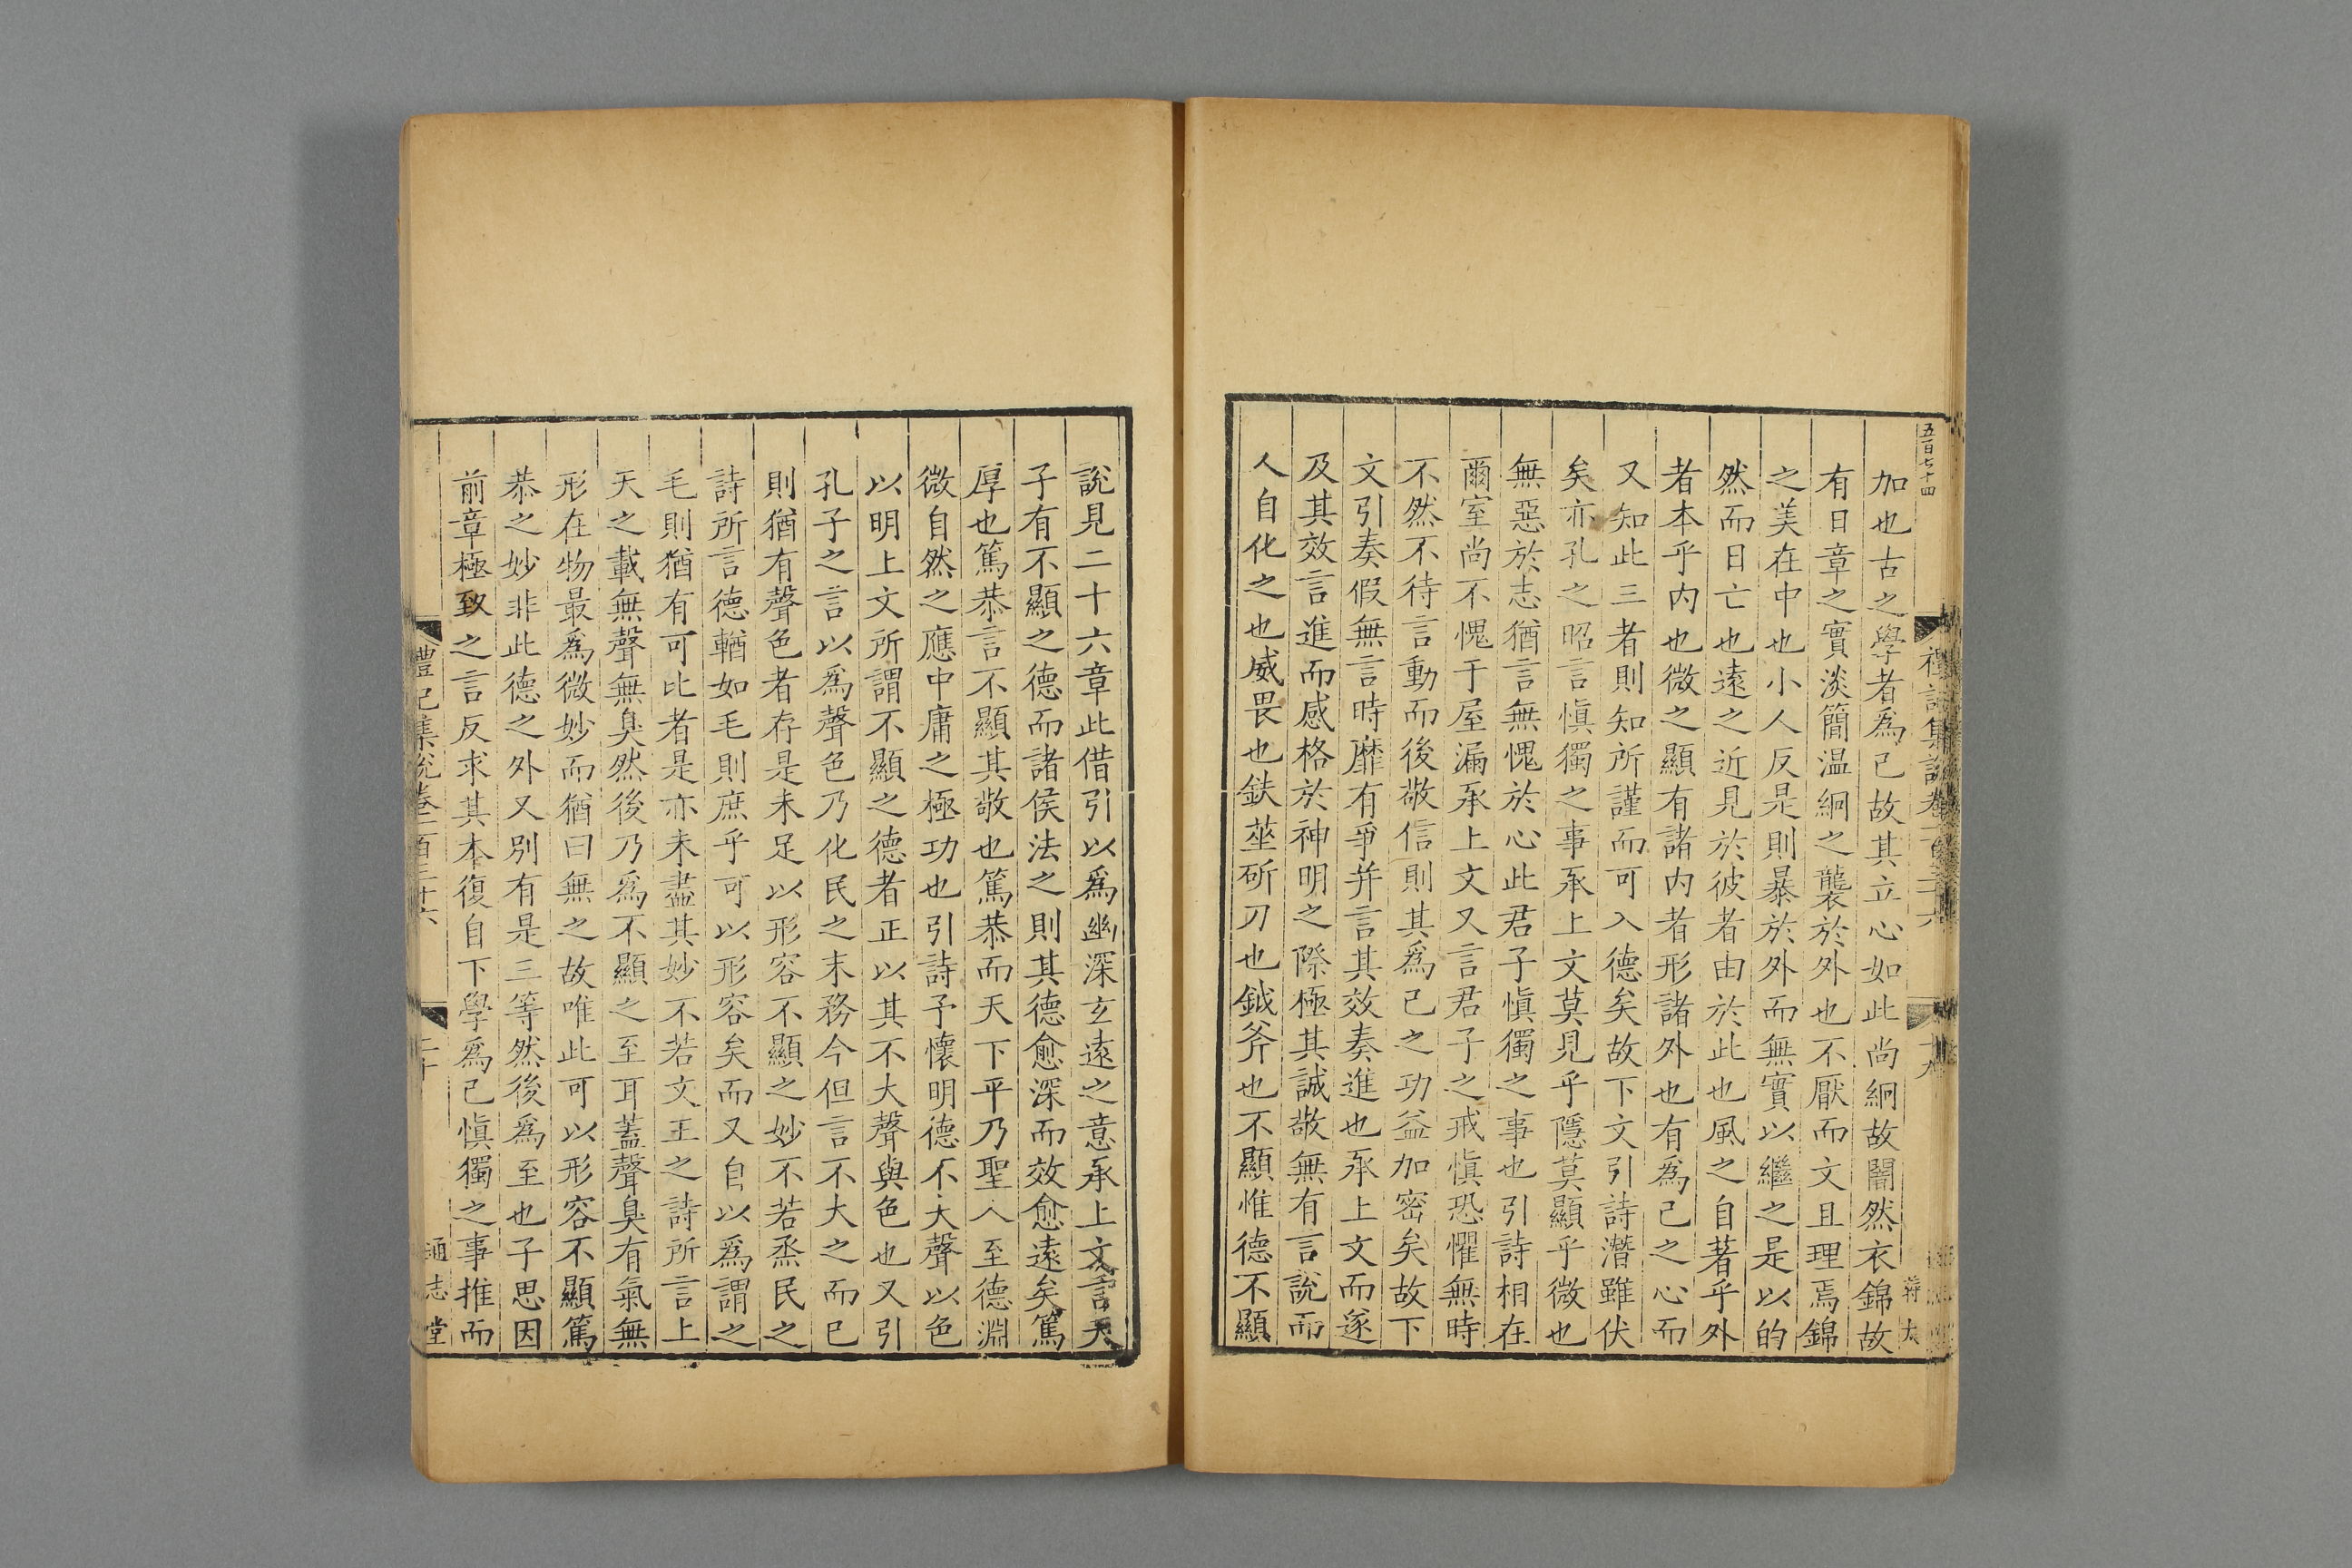 五百七十四
禮記集說卷一百三十六
十九
加也古之學者為已故其立心如此尚絅故闇然衣錦故
有日章之實淡簡温絅之襲於外也不厭而文且理焉錦
之美在中也小人反是則暴於外而無實以繼之是以的
然而日亡也遠之近見於彼者由於此也風之自著乎外
者本乎内也微之顯有諸内者形諸外也有為已之心而
又知此三者則知所謹而可入德矣故下文引詩潛雖伏
矣亦孔之昭言慎獨之事承上文莫見乎隱莫顯乎微也
無惡於志猶言無愧於心此君子慎獨之事也引詩相在
爾室尚不愧于屋漏承上文又言君子之戒慎恐懼無時
不然不待言動而後敬信則其為已之功益加密矣故下
文引奏假無言時靡有爭并言其效奏進也承上文而遂
及其效言進而感格於神明之際極其誠敬無有言說而
人自化之也威畏也鈇莝斫刀也鉞斧也不顯惟德不顯
說見二十六章此借引以為幽深玄遠之意承上文言天
子有不顯之德而諸侯法之則其德愈深而效愈遠矣篤
厚也篤恭言不顯其敬也篤恭而天下平乃聖人至德淵
微自然之應中庸之極功也引詩予懷明德不大聲以色
以明上文所謂不顯之德者正以其不大聲與色也又引
孔子之言以為聲色乃化民之末務今但言不大之而已
則猶有聲色者存是未足以形容不顯之妙不若烝民之
詩所言德輶如毛則庶乎可以形容矣而又自以為謂之
毛則猶有可比者是亦未盡其妙不若文王之詩所言上
天之載無聲無臭然後乃為不顯之至耳蓋聲臭有氣無
形在物最為微妙而猶曰無之故唯此可以形容不顯篤
恭之妙非此德之外又別有是三等然後為至也子思因
前章極致之言反求其本復自下學為已慎獨之事推而
禮記集說卷一百三十六
二十
通志堂